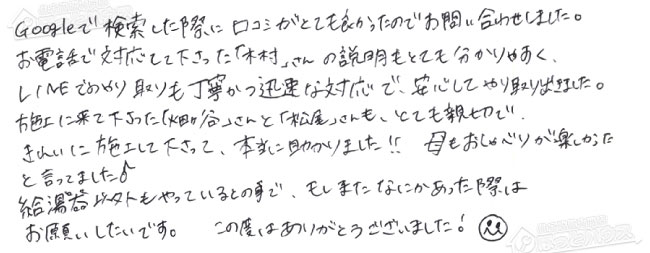 Googleで検索した際に口コミがとても良かったのでお問い合わせしました。
お電話で対応して下さった「木村」さんの説明もとても分かりやすく、
LINEでのやり取りも丁寧かつ迅速な対応で、安心してやり取り出来ました。
施工に来て下さった「畑ヶ谷」さんと「松尾」さんも、とても親切で、
きれいに施工して下さって、本当に助かりました!! 母もおしゃべりが楽しかった
と言ってました♪
給湯器以外もやっているとの事で、もしまたなにかあった際は
お願いしたいです。 この度はありがとうございました!